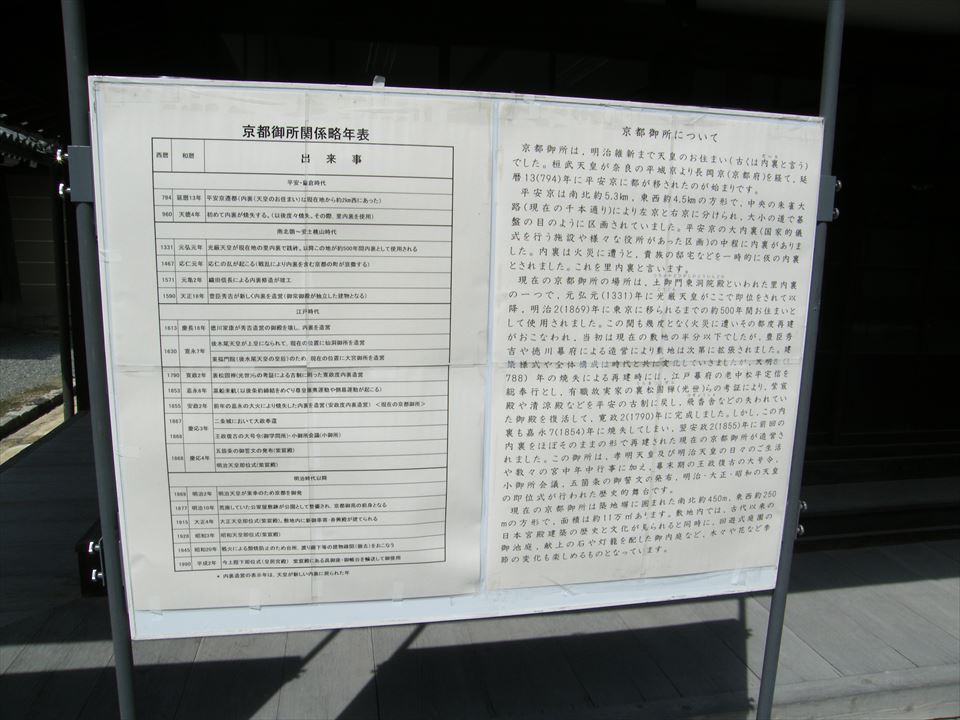 京都御所関係略年表
西暦 和暦 出来事
平安・鎌倉時代
794 延暦13年 平安京遷都(内裏(天皇のお住まい)は現在地から約2km西にあった)
960 天徳4年 初めて内裏が焼失する。(以後度々焼失、その際、里内裏を使用)
南北朝~安土桃山時代
1331 元弘元年 光厳天皇が現在地の里内裏で践祚。以降この地が約500年間内裏として使用される
1467 応仁元年 応仁の乱が起こる(戦乱により内裏を含む京都の町が衰微する)
1571 元亀2年 織田信長による内裏修造が竣工
1590 天正18年 豊臣秀吉が新しく内裏を造営(御常御殿が独立した建物となる)
江戸時代
1613 慶長18年 徳川家康が秀吉造営の御殿を壊し、内裏を造営
1630 寛永7年 後水尾天皇が上皇になられて、現在の位置に仙洞御所を造営
東福門院(後水尾天皇の皇后)のため、現在の位置に大宮御所を造営
1790 寛政2年 裏松固禅(光世)らの考証による古制に則った寛政度内裏造営
1853 嘉永6年 黒船来航(以後条約締結をめぐり尊皇攘夷運動や倒幕運動が起こる)
1855 安政2年 前年の嘉永の大火により焼失した内裏を造営(安政度内裏造営) <現在の京都御所>
1867 慶応3年 二条城において大政奉還
1868 王政復古の大号令(御学問所)・小御所会議(小御所)
1868 慶応4年 五箇条の御誓文の発布(紫宸殿)
明治天皇即位式(紫宸殿)
明治時代以降
1869 明治2年 明治天皇が東幸のため京都を御発
1877 明治10年 荒廃していた公家屋敷跡が公園として整備され、京都御苑の前身となる
1915 大正4年 大正天皇即位式(紫宸殿)。敷地内に新御車寄・春興殿が建てられる
1928 昭和3年 昭和天皇即位式(紫宸殿)
1945 昭和20年 戦火による類焼防止のため台所、渡り廊下等の建物疎開(撤去)をおこなう
1990 平成2年 今上陛下即位式(皇居宮殿) 紫宸殿にある高御座・御帳台を輸送して御使用
* 内裏造営の表示年は、天皇が新しい内裏に戻られた年
京都御所について
京都御所は、明治維新まで天皇のお住まい(古くは内裏と言う)
でした。桓武天皇が奈良の平城京より長岡京(京都府)を経て、延
暦13(794)年に平安京に都が移されたのが始まりです。
平安京は南北約5.3km、東西約4.5kmの方形で、中央の朱雀大
路(現在の千本通り)により左京と右京に分けられ、大小の道で碁
盤の目のように区画されていました。平安京の大内裏(国家的儀
式を行う施設や様々な役所があった区画)の中程に内裏がありま
した。内裏は火災に遭うと、貴族の邸宅などを一時的に仮の内裏
とされました。これを里内裏と言います。
現在の京都御所の場所は、土御門東洞院殿といわれた里内裏
の一つで、元弘元(1331)年に光厳天皇がここで即位をされて以
降、明治2(1869)年に東京に移られるまでの約500年間お住まいと
して使用されました。この間も幾度となく火災に遭いその都度再建
がおこなわれ、当初は現在の敷地の半分以下でしたが、豊臣秀
吉や徳川幕府による造営により敷地は次第に拡張されました。建
築様式や全体構成は時代と共に変化していきましたが、天明8(1
788) 年の焼失による再建時には、江戸幕府の老中松平定信を
総奉行とし、有職故実家の裏松固禅(光世)らの考証により、紫宸
殿や清涼殿などを平安の古制に戻し、飛香舎などの失われてい
た御殿を復活して、寛政2(1790)年に完成しました。しかし、この内
裏も嘉永7(1854)年に焼失してしまい、翌安政2(1855)年に前回の
内裏をほぼそのままの形で再建された現在の京都御所が造営さ
れました。この御所は、孝明天皇及び明治天皇の日々のご生活
や数々の宮中年中行事に加え、幕末期の王政復古の大号令、
小御所会議、五箇条の御誓文の発布、明治・大正・昭和の天皇
の即位式が行われた歴史的舞台です。
現在の京都御所は築地塀に囲まれた南北約450m、東西約250
mの方形で、面積は約11万㎡あります。敷地内では、古代以来の
日本宮殿建築の歴史と文化が見られると同時に、回遊式庭園の
御池庭、献上の石や灯籠を配した御内庭など、木々や花など季
節の変化も楽しめるものとなっています。